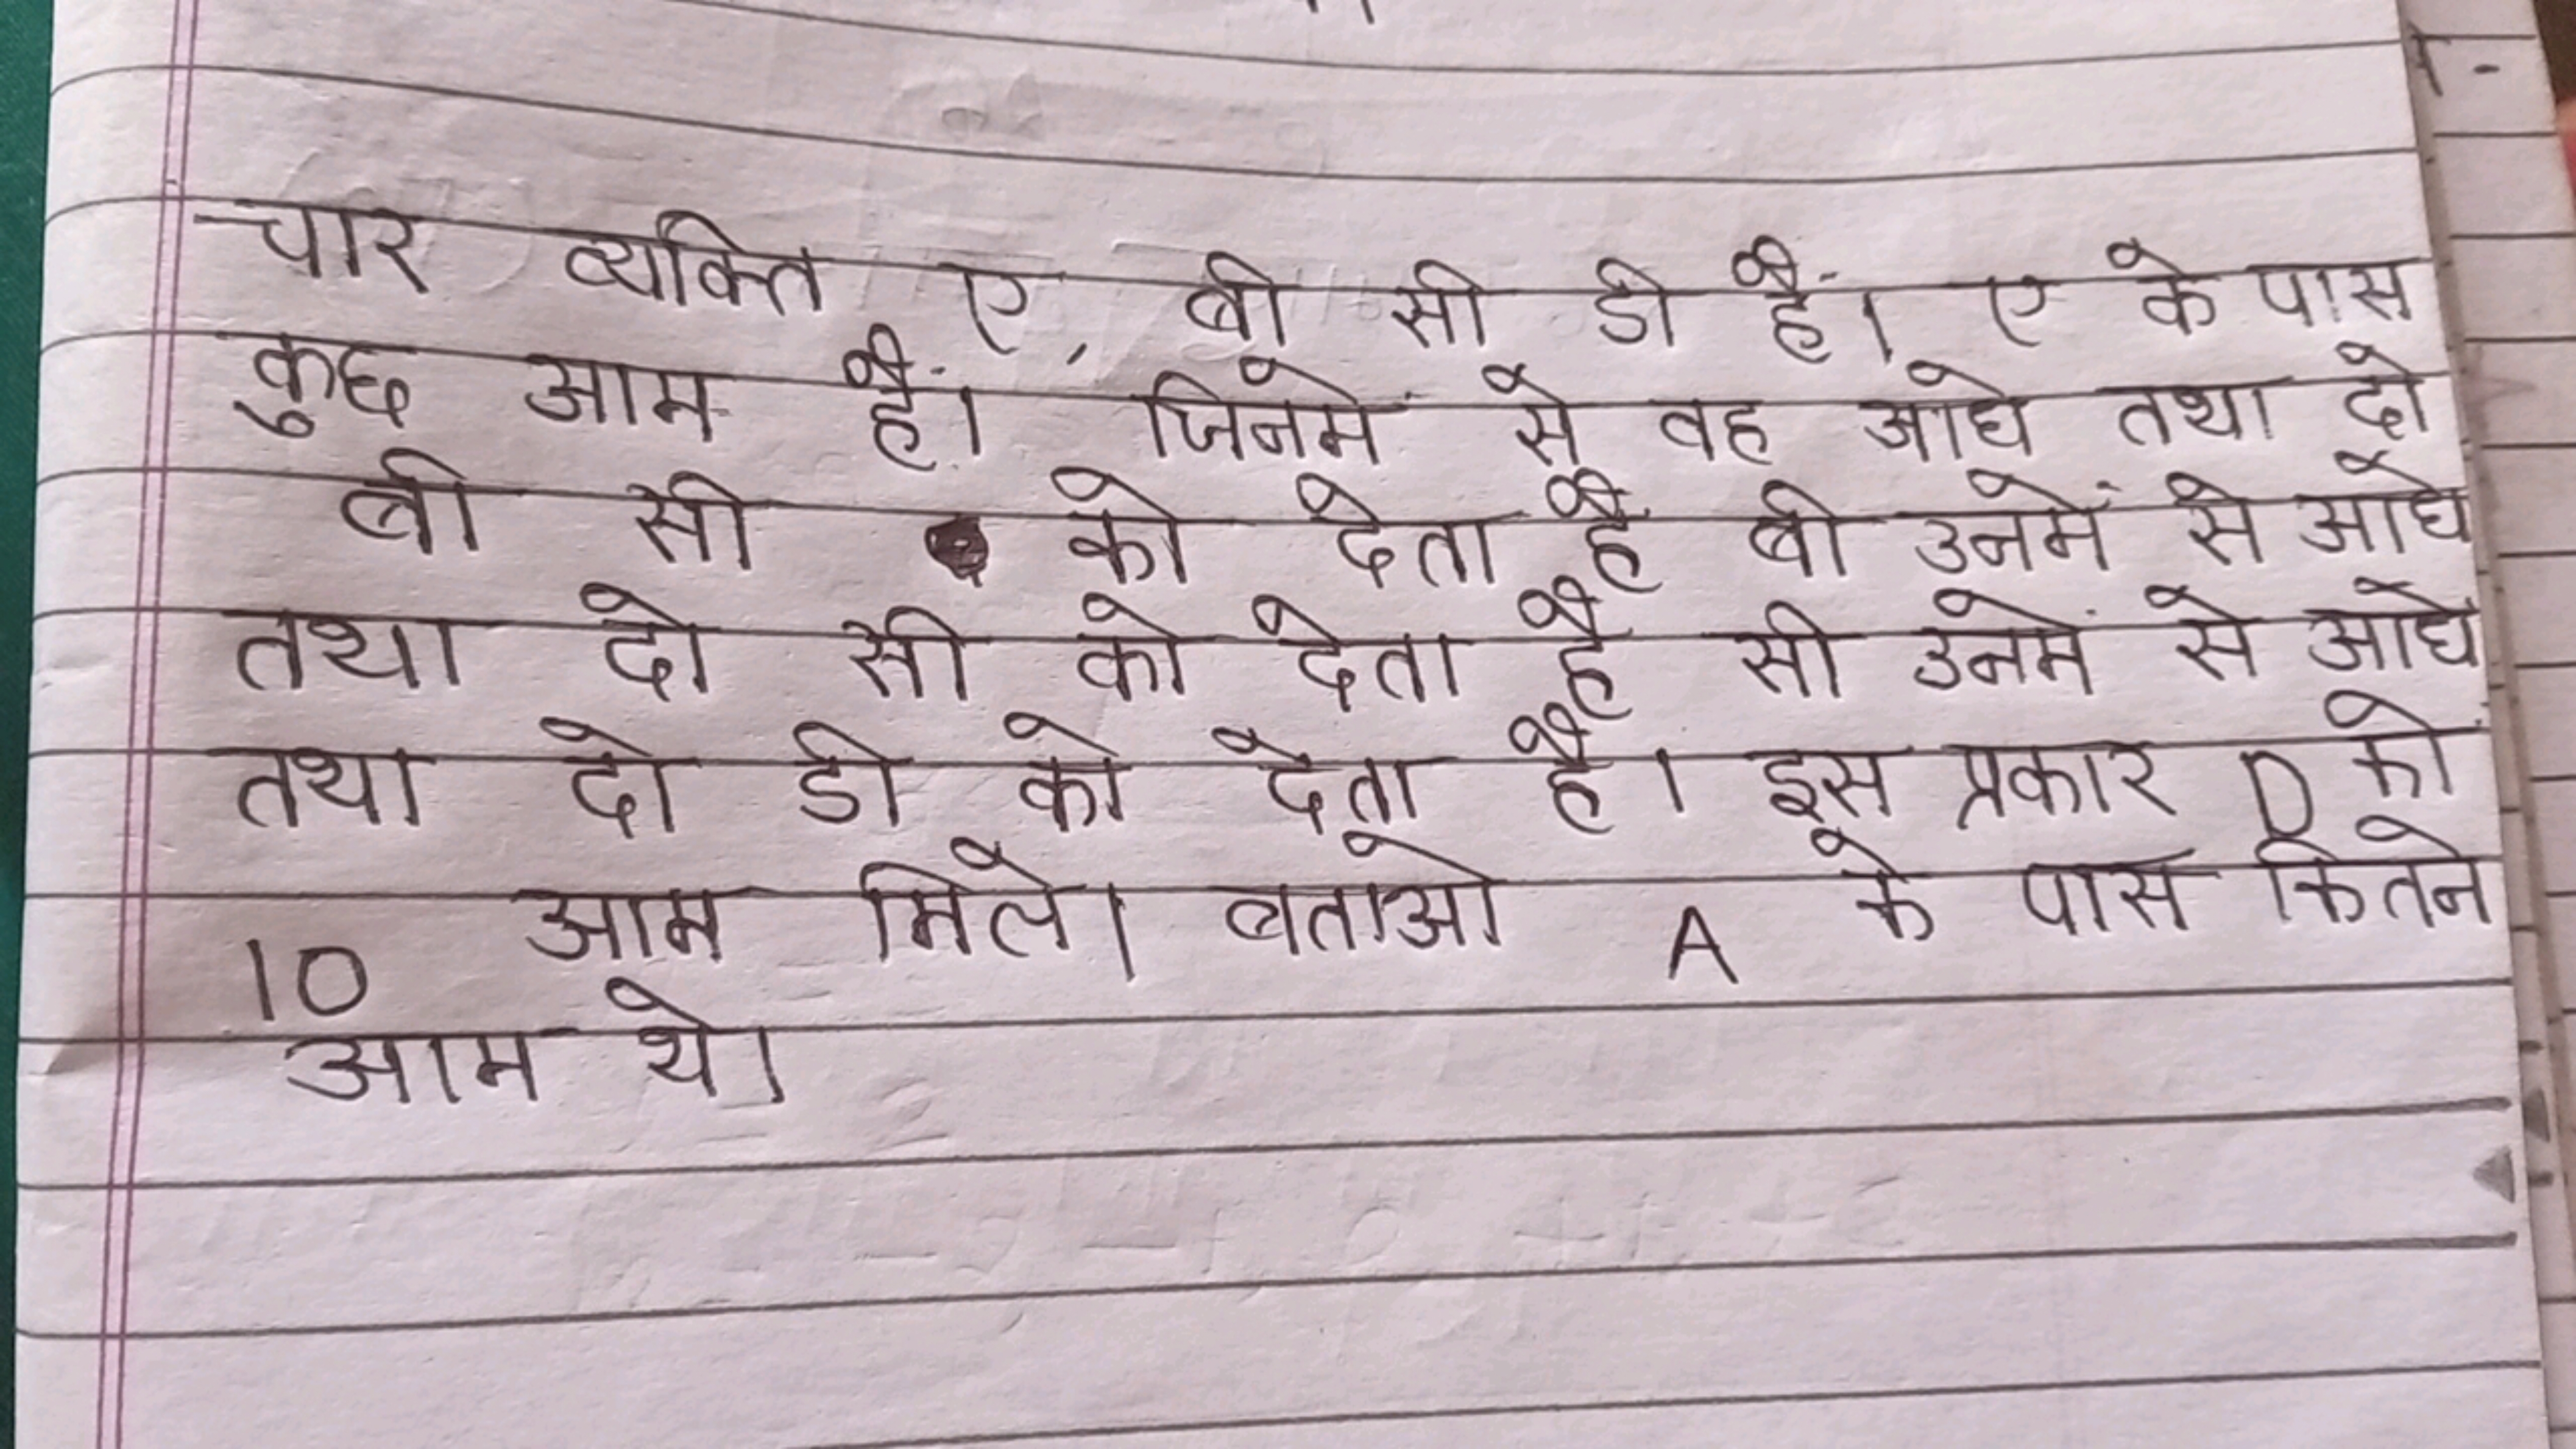 चार व्यक्ति ए, बी सी डी हैं। ए के पास
कुछ आम हैं। जिनमें से वह आधे तथा दो
बी सी को देता है बी उनमें से आधे
तथा दो सी को देता है सी उनमें से आधे
तथा दो डी को देता है। इस प्रकार D को
10 आम मिले। बताओ A के पास कितने
आम थे।